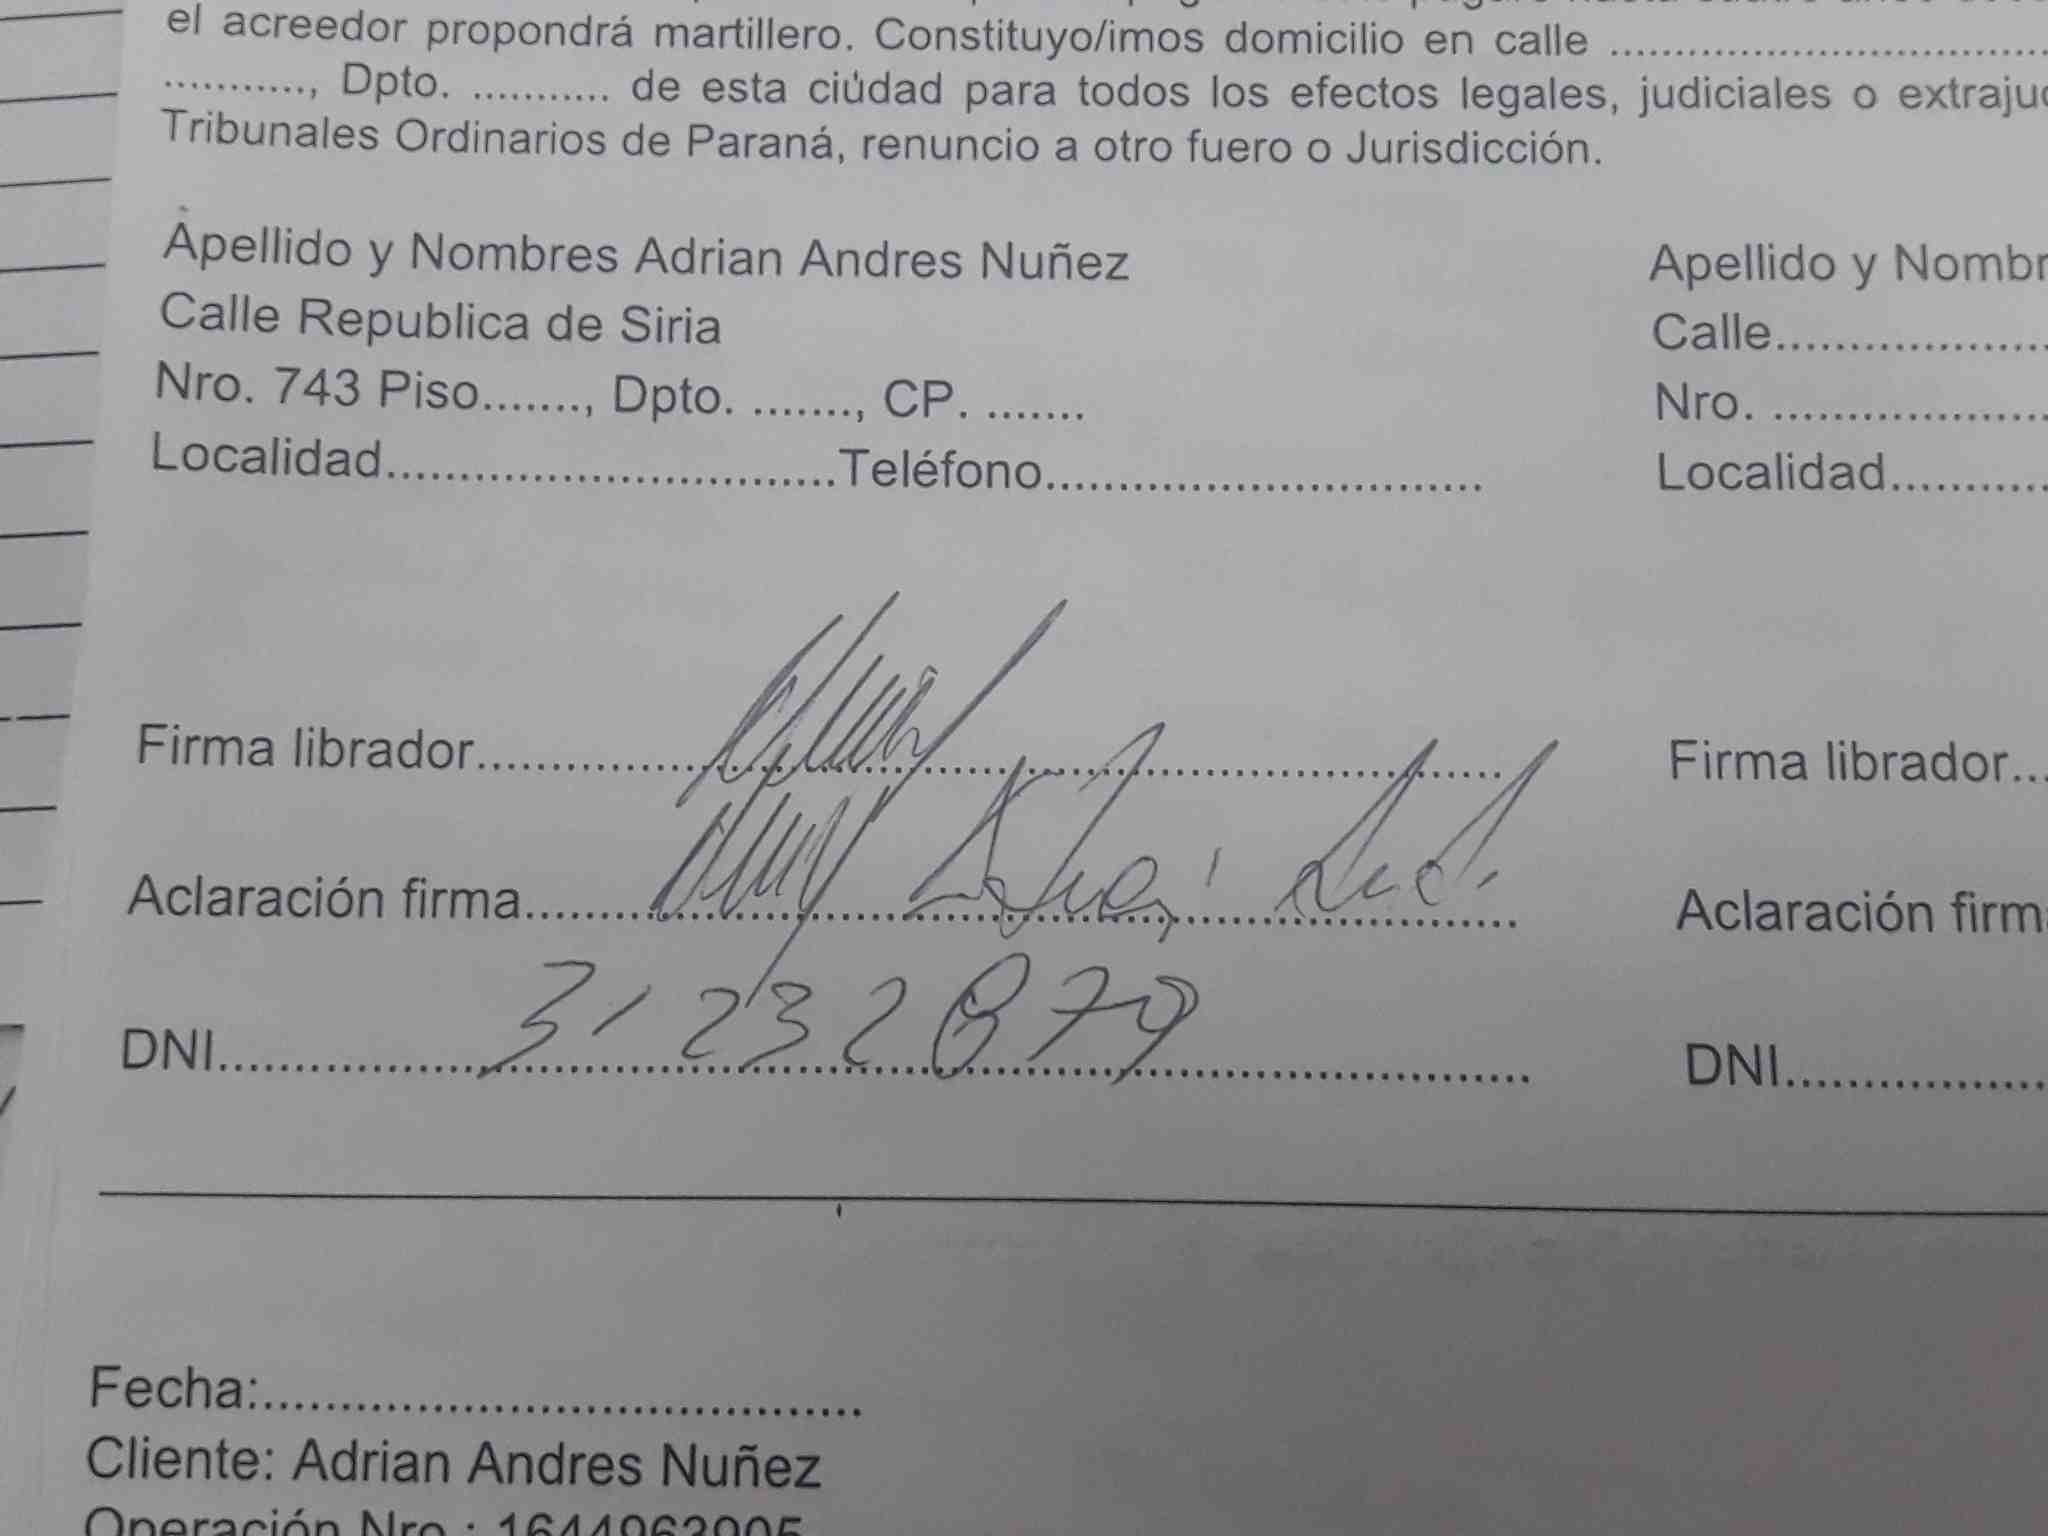 el acreedor propondrá martillero. Constituyo/imos domicilio en calle ....................................
............, Dpto. ........... de esta ciudad para todos los efectos legales, judiciales o
Tribunales Ordinarios de Paraná, renuncio a otro fuero o Jurisdicción.
Apellido y Nombres Adrian Andres Nuñez
Calle Republica de Siria
Nro. 743 Piso......., Dpto. ......., CP. .......
Localidad...............................Teléfono..............................
Apellido y
Calle...................
Nro. ...................
Localidad...........
Firma librador......................................................................
Aclaración firma...................................................................
DNI 31232879
Firma librador...
Aclaración
DNI..................
Fecha:.........................................
Cliente: Adrian Andres Nuñez
Operación Nro.: 1644963905